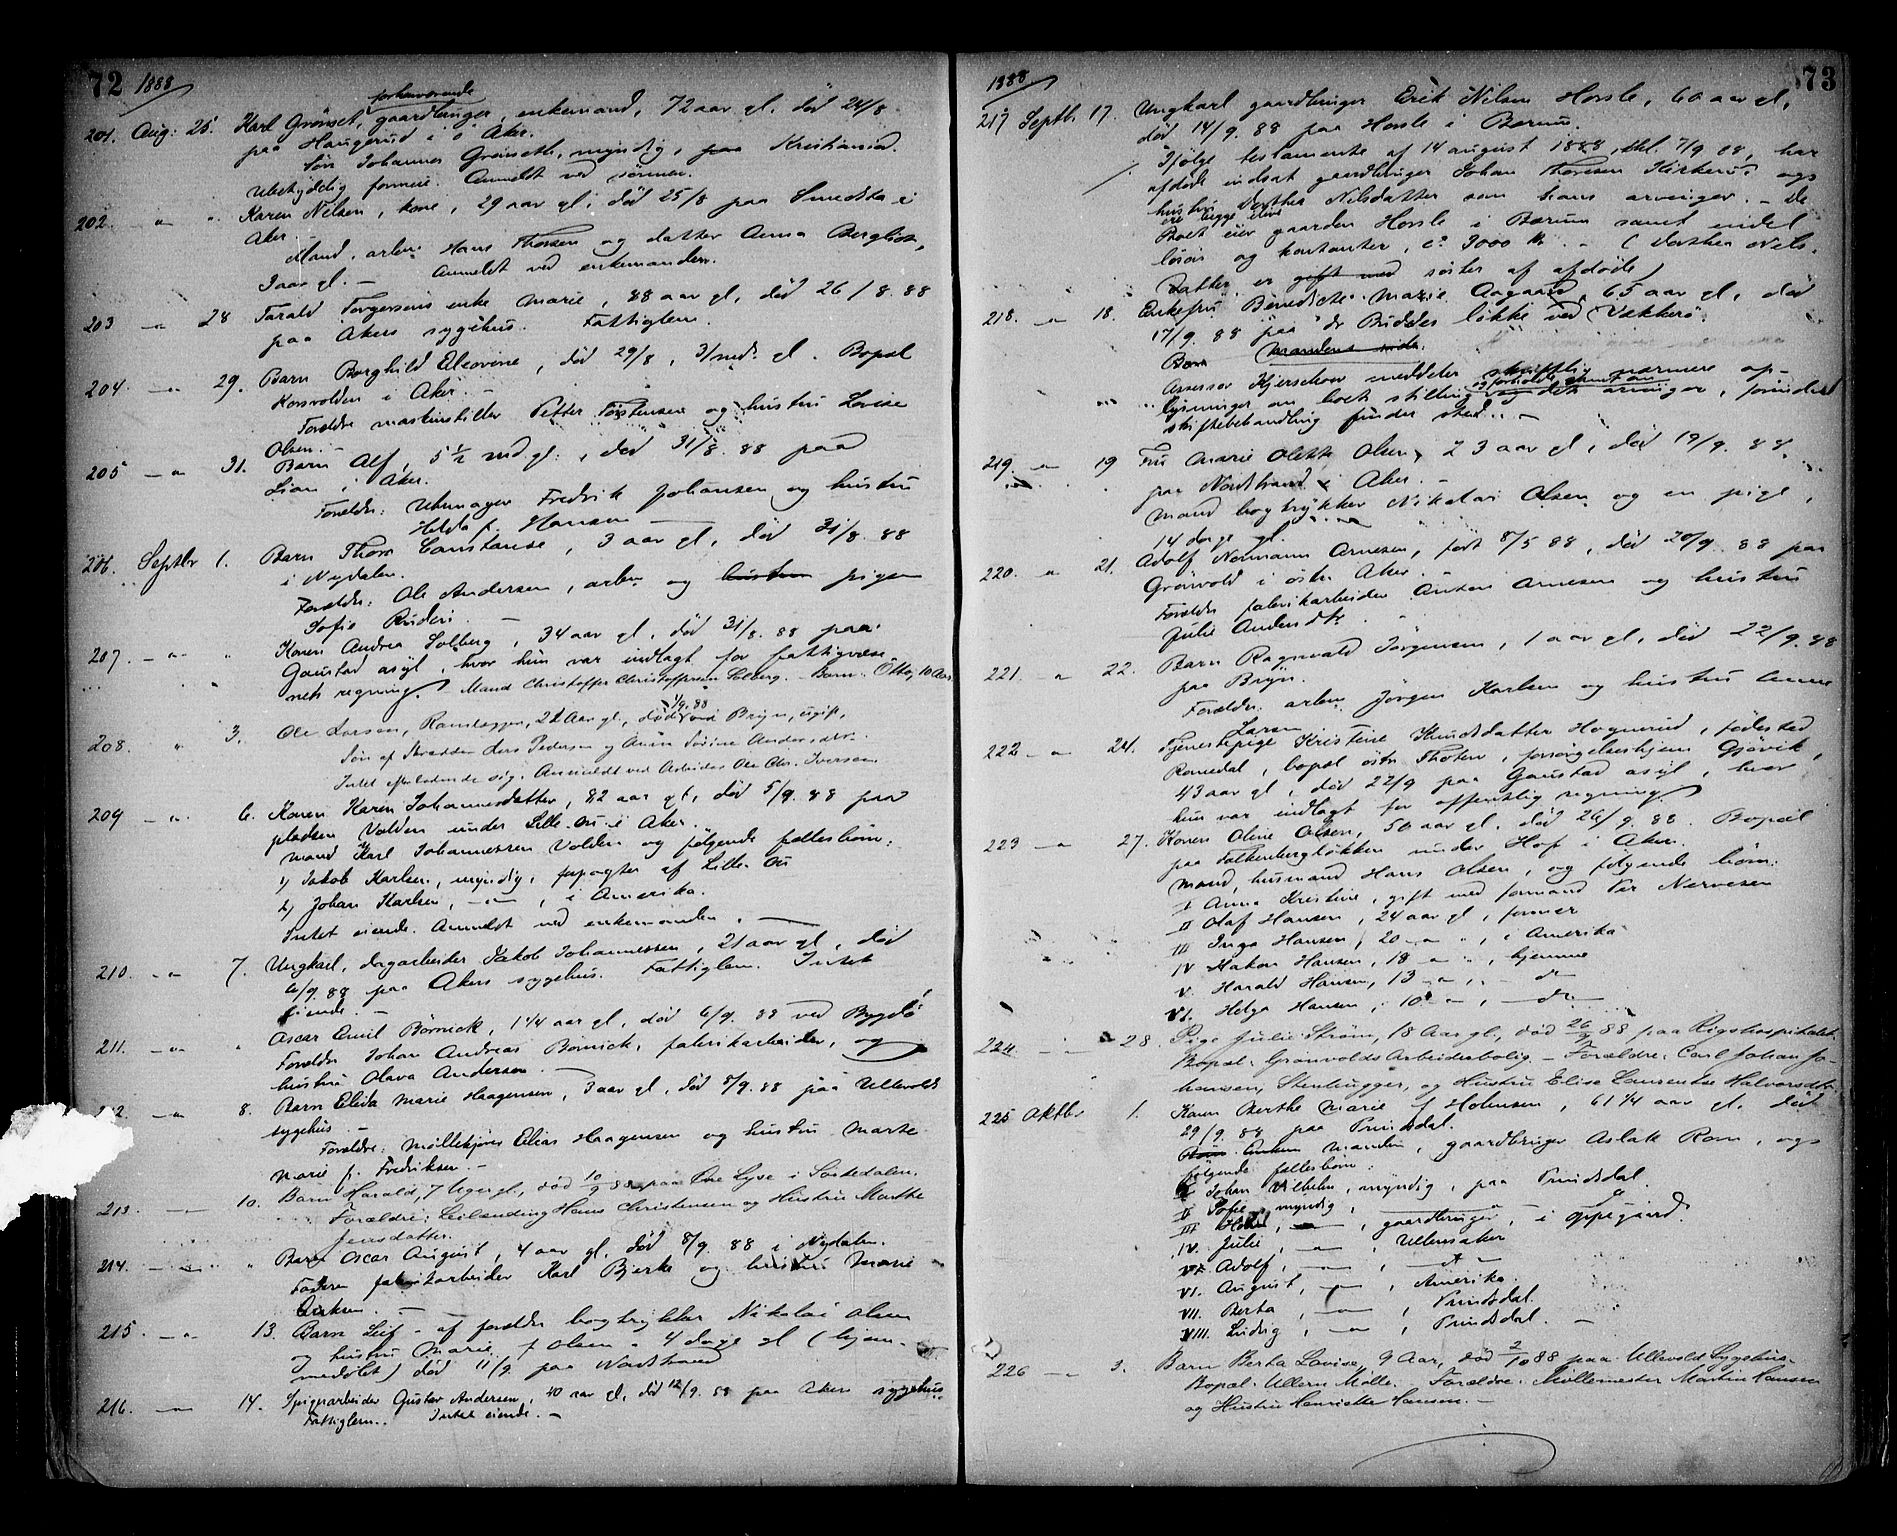 72 1888
forhenværende
201. Aug: 25. Karl Grønset, gaardbruger, enkemand, 72 aar gl. død 24/8
paa Haugerud i ø Aker.
Søn Johannes Grønseth, myndig, paa Kristiania.
Ubetydelig formue. Anmeldt ved sønnen.
202. " " Karen Nilsen, kone, 29 aar gl. død 25/8 paa Smedsta i
Aker
Mand, arbm. Hans Thorsen og datter Anna Bergliot,
3 aar gl. — Anmeldt ved enkemanden.
203 — " 28 Tarald Torgersens enke Marie, 88 aar gl, død 26/8.88
paa Akers sygehus. Fattiglem.
204 — " 29. Barn Borghild Eleovine, død 29/8, 3 mdr. gl. Bopæl
Korsvolden i Aker. —
Forældre maskinstiller Petter Torstensen og hustru Lovise
Olsen. —
205 — " 31. Barn Alf, 5 1/2 md gl., død 31/8. 88 paa
Lian i Aker.
Forældre: Uhrmager Fredrik Johansen og hustru
Hilda f. Hansen —
206. Septbr 1. Barn Thora Constanse, 3 aar gl, død 31/8. 88
i Nydalen.
Forældre: Ole Andersen, arbm og hustru pigen
Sofie Ruden. —
207. — " " Konen Andrea Solberg, 34 aar gl. død 31/8. 88 paa
Gaustad asyl, hvor hun var indlagt for fattigvæse-
nets regning. Mand Christoffer Christoffersen Solberg. – Barn: Otto, 10 Aar
1/9.88
208. " 3. Ole Larsen, 21 Aar gl., død ved Bryn, ugift,
Søn af Skrædder Lars Pedersen og Anne Sofine Andersdtr.
Intet efterladende sig. Anmeldt ved Arbeider Ole Chr. Iversen
209 — " 6. Konen Karen Johannesdatter, 82 aar gl, død 5/9. 88 paa
pladsen Volden under Lille Øu i Aker.
Mand Karl Johannessen Volden og følgende fællesbørn:
1) Jakob Karlsen, myndig, forpagter af Lille Øu
2) Johan Karlsen, — " — , i Amerika.
Intet eiende. Anmeldt ved enkemanden. —
210. — " 7. Ungkarl, dagarbeider Jakob Johannessen, 21 aar gl, død
6/9. 88 paa Akers sygehus. Fattiglem. Intet
eiende. —
211. — " " Oscar Emil Børnick, 1 1/4 aar gl, død 6/9. 88 ved Bygdø
Forældre Johan Andreas Børnick, fabrikarbeider, og
hustru Olava Andersen —
212. — " 8. Barn Elida Marie Haagensen, 3 aar gl, død 8/9. 88 paa Ullevolds
sygehus —
Forældre: Møllekjører Elias Haagensen og hustru Marte
Marie f. Fredriksen. —
213 — 10. Barn Harald, 7 Uger gl., død 10/9 88 paa Øvre Lyse i Sørkedalen.
Forældre: Leilænding Hans Christensen og Hustru Marthe
Jensdatter.
214. — " Barn Oscar August, 4 aar gl, død 8/9. 88 i Nydalen.
Faderen fabrikarbeider Karl Bjerke og hustru Marie
Eriksen. —
215. — " 13. Barn Leif – af forældre bogtrykker Nikolai Olsen
og hustru Marie f Olsen – 4 dage gl (hjem-
medøbt) død 11/9. paa Nordstrand
216. — 14. Spigerarbeider Gustav Andersen, 40 aar gl, død 12/9. 88 paa Akers sygehus
Fattiglem. Intet eiende. —
1888 73
217 Septb. 17. Ungkarl gaardbruger Erik Nilsen Hosle, 60 aar gl,
død 14/9. 88 paa Hosle i Bærum.
Ifølge testamente af 14 august 1888, thl. 7/9 88, har
afdøde indsat gaardbruger Johan Thoresen Kirkerud og
hustru Dorthea Nilsdatter som hans arvinger. – De
Boet eier gaarden Hosle i Bærum samt endel
løsøre og kontanter, ca 3000 Kr. – (Dorthea Nils-
datter er gift med søster af afdøde)
218. — " 18. Enkefru Benedicte Marie Aagaard, 65 aar gl, død
17/9. 88 paa dr Buddes løkke ved Vækkerø.
Børn Mandens inde.
Assessor Kjerschow meddeler skriftlig nærmere op-
lysninger om boets stilling og forholdet arvinger, forinden
skiftebehandling finder sted. —
219. — " 19 Fru Marie Olette Olsen, 23 aar gl, død 19/9. 88
paa Nordstrand i Aker. —
Mand bogtrykker Nikolai Olsen og en pige,
14 dage gl.
220. " 21. Adolf Normann Arnesen, født 8/5 88, død 20/9. 88 paa
Grønvold i østre Aker. —
Forældre fabrikarbeider Anton Arnesen og hustru
Julie Andersdtr.
221. — " 22. Barn Ragnvald Jørgensen, 1 aar gl, død 22/9.88
paa Bryn.
Forældre: arbm. Jørgen Karlsen og hustru Anne
Larsen
222 — " 24. Tjenestepige Kristine Knudsdatter Hognerud, fødested
Romedal, bopæl østre Thoten, forsørgelseshjem Gjøvik,
43 aar gl, død 22/9 paa Gaustad asyl, hvor
hun var indlagt for offentlig regning.
223 — " 27. Konen Oline Olsen, 50 aar gl, død 26/9. 88. Bopæl
paa Falkenbergløkken under Hof i Aker.
Mand, husmand Hans Olsen, og følgende børn:
I Anna Kristine, gift med formand Per Narvesen
II Olaf Hansen, 24 aar gl, former
III Inga Hansen, 20 — " — , i Amerika
IV Hakon Hansen, 18 — " — , hjemme
V. Harald Hansen, 13 — " — , — do
VI. Helga Hansen, 10 — " — , — do —
224. — " 28. Pige Julie Strøm, 18 Aar gl, død 26/9 88 paa Rigshospitalet.
Bopæl: Grønvolds Arbeiderbolig – Forældre: Carl Johan Jo-
hansen, Stenhugger, og Hustru Elise Laurentse Halvorsdtr.
225 Oktbr 1. Konen Berthe Marie f Holmsen, 61 1/4 aar gl. død
29/9. 88 paa Prinsdal.
Manden, gaardbruger Aslak Rom, og
følgende fællesbørn:
I Johan Vilhelm, myndig, paa Prinsdal.
II Sofie, myndig, — " —
III , — " — , gaardbruger, i Oppegaard.
IV. Julie, — " — , Ullensaker
V. Adolf, — " — , — " —
VI. August, — " — , Amerika.
VII. Berta, — " — , Prinsdal.
VIII. Ludvig, — " — , Prinsdal. —
226 — " 3. Barn Berta Lovise, 9 Aar, død 2/10 88 paa Ullevold Sygehus.
Bopæl: Ullern Mølle. Forældre: Møllemester Martin Hansen
og Hustru Henriette Hansen. —